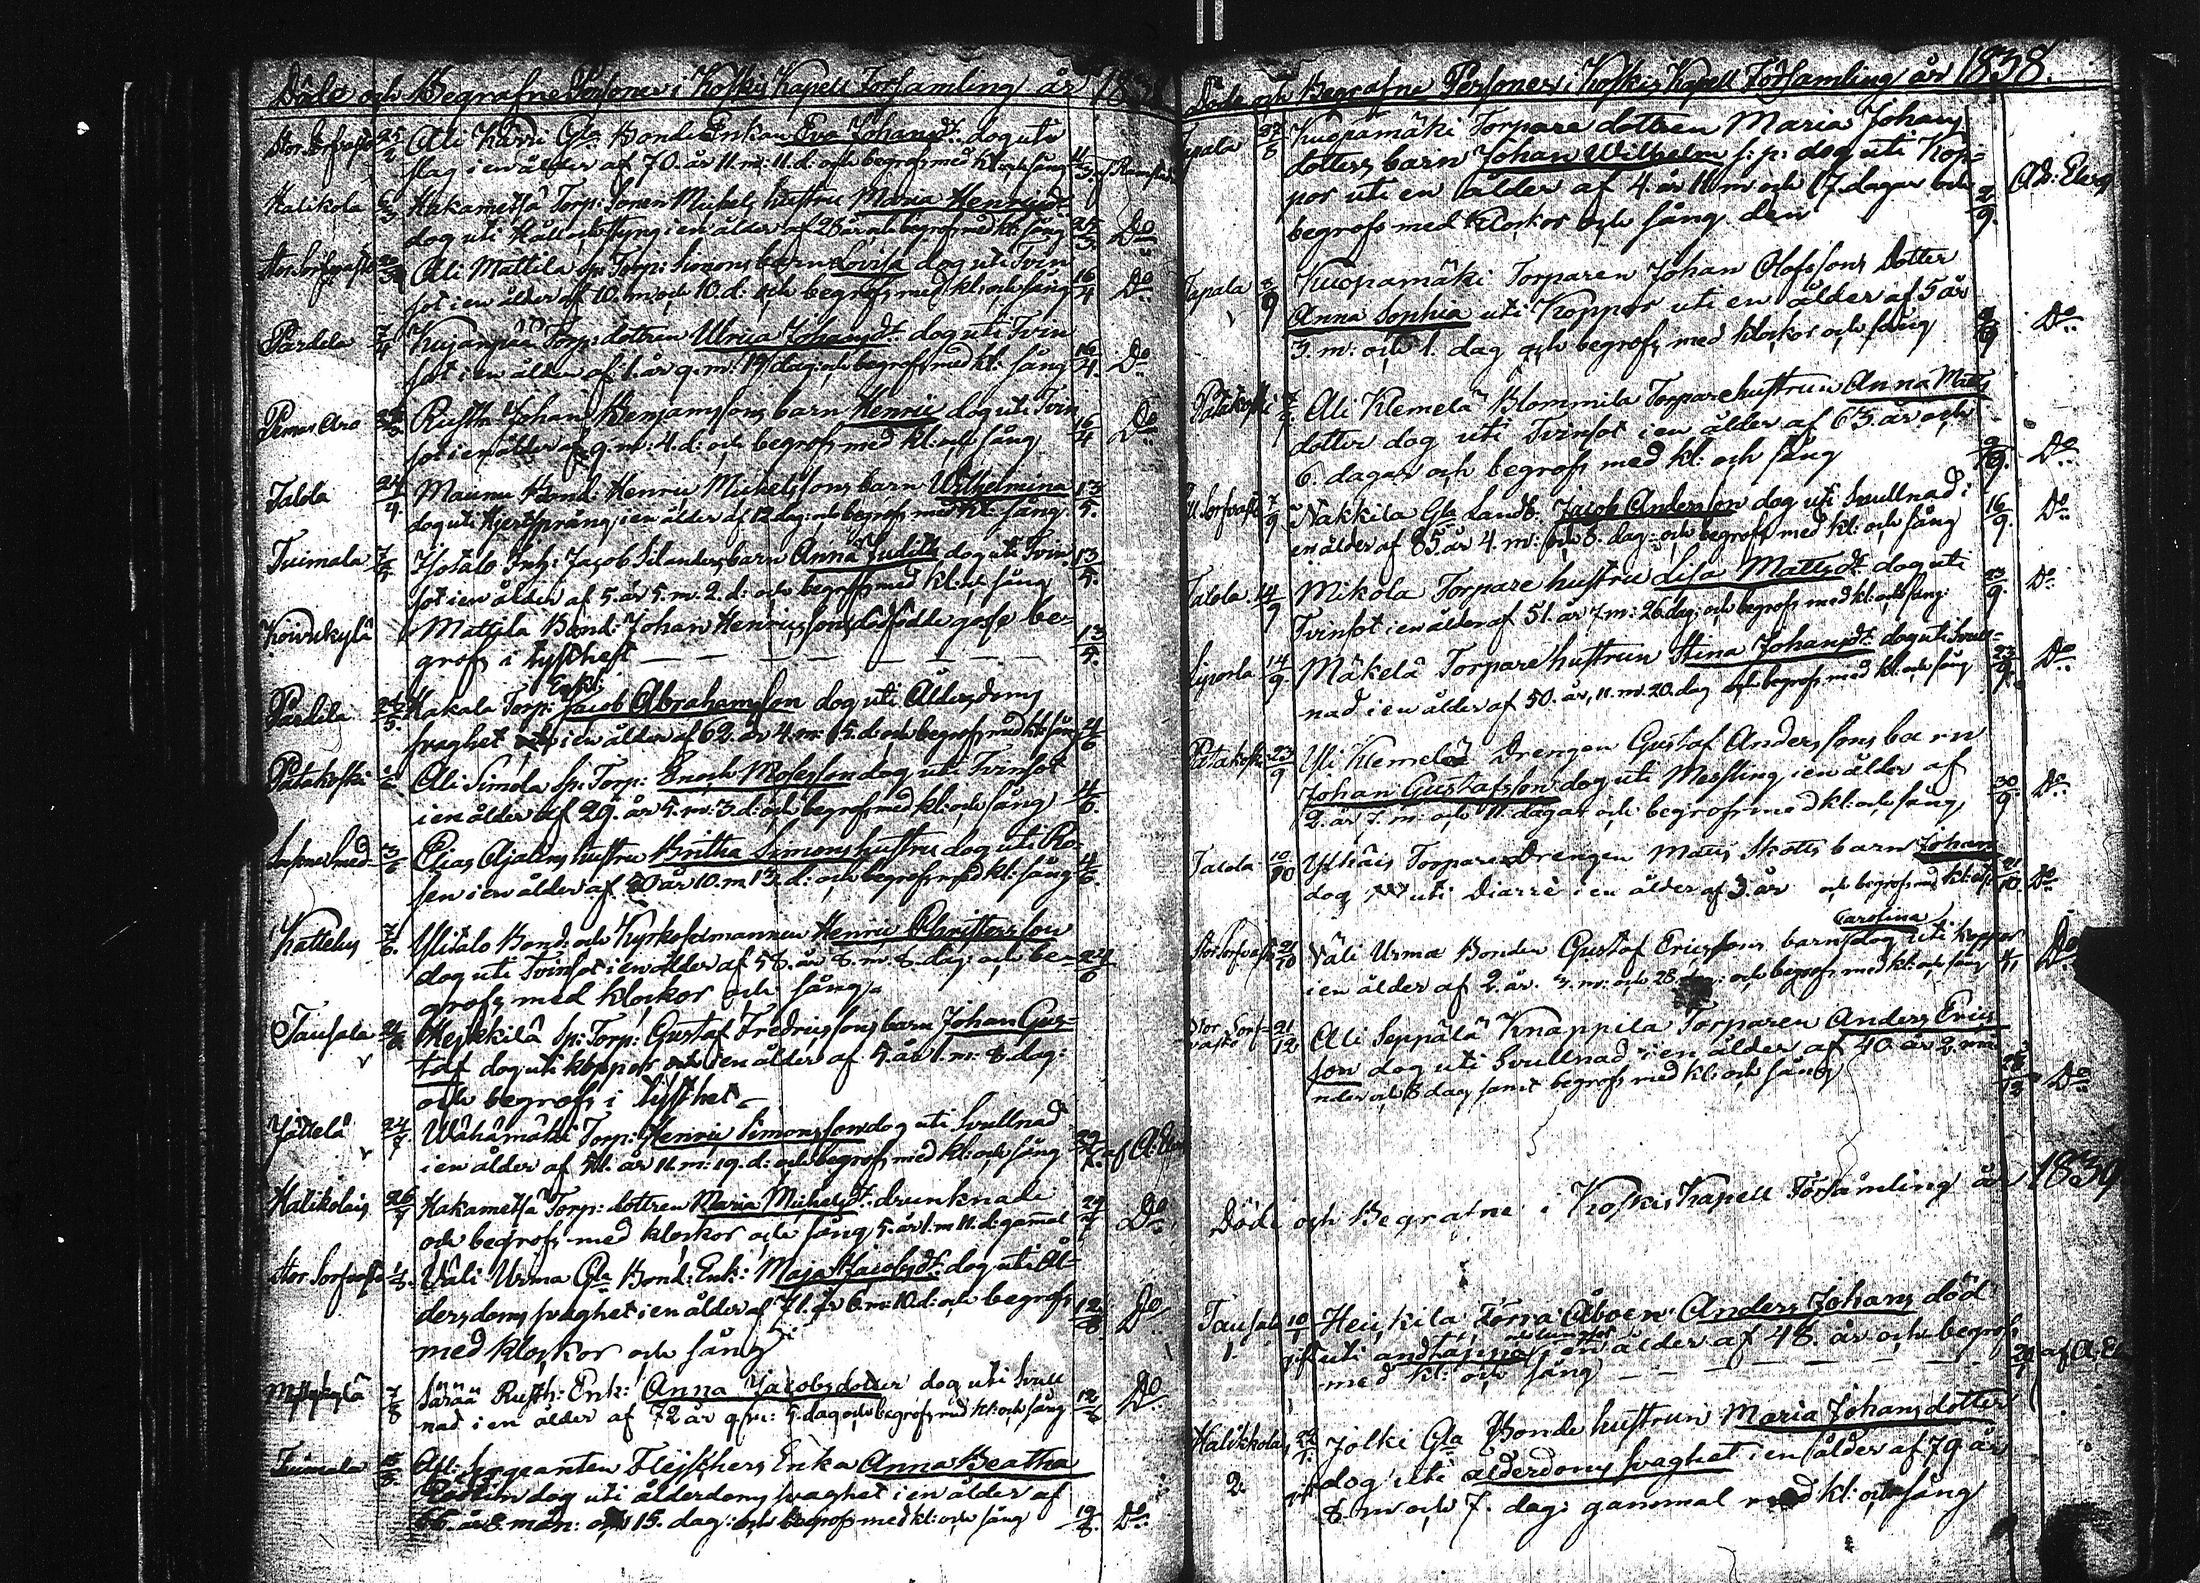 Döde och Begrafne Personer i Koskis Kapell Församling år 1838
Stor Sorfvasto 25/2 Ali Härri Gla Bonde Enkan Eva Johansdt: dog uti
slag i en ålder af 70. år 11. m: 11. d: och begrofs med kl: och sång 11/3
Halikola Hakametsä Torp: Sonen Michels hustru Maria Henricsdt
dog uti Håll och Styng i en ålder af 28 år och begrofs med kl: sång 25/3 Do
Ali Mattila Sp: Torp: Simons barn Lovisa dog uti Tvin
sot i en ålder af 10. m: och 10. d: och begrofs med kl: och sång 16/4 Do
Pärdela 7/4 Kujanpää Torp: dottren Ulrica Johansdt dog uti Tvin
sot i en ålder af 1. år 9. m: 19 dag: och begrofs med kl: sång 16/4 Do
Rusth: Johan Benjamssons barn Henric dog uti Tvin
sot i en ålder af 9. m: 4. d: och begrofs med kl: och sång 16/4 Do
Talola 24/4 Maunu Bond: Henric Michelssons barn Wilhelmina
dog uti Hjertsprång i en ålder af 12 dag: och begrofs med kl: sång 13/5
Tuimala 7/5 Isotalo Inh: Jacob Silanders barn Anna Judith dog uti Tvin
sot i en ålder af 5. år 5. m. 2. d: och begrofs med kl: o. sång 13/5
Koivukylä Mattila Bond: Johan Henricssons dödfödde gosse be-
grofs i tysthet — — — — — 13/5
Pärdila 5 Kakala Torp: Enkl: Jacob Abrahamsson dog uti Ålderdoms
svaghet i en ålder af 62. år 4. m: 15. d: och begrofs med kl: sång 4/6
Patakoski Ali Simola Sp: Torp: Enoch Mosesson dog uti Tvinsot
i en ålder af 29. år 5. m: 3. d: och begrofs med kl: och sång 4/6
3/6 Elias Ajalins hustru Britha Simons hustru dog uti Ro-
sen i en ålder af 20 år 10. m 13. d: och begrofs med kl: sång 4/6
Kattelus 7/6 Ylitalo Bond: och Kyrkosexmannen Henric Christersson
dog uti Tvinsot i en ålder af 58. år 8. m. 8. dag: och be- 24/6
grofs med klockor och sång.
Tausala Heikkilä Sp: Torp: Gustaf Fredricssons barn Johan Gus-
taf dog uti koppor i en ålder af 5. år 1. m: 8. dag:
och begrofs i tysthet.
Jättelä 24/7 Wähämäki Torp: Henric Simonsson dog uti Svullnad
i en ålder af 51. år 11. m: 19. d: och begrofs med kl: och sång 29/7 af A: Elers
Halikolais 26/7 Hakametsä Torp: dottren Maria Michelsdt: drunknade
och begrofs med klockor och sång 5. år 1. m 11. d: gamal 29/7 Do
Stor Sorfvasto Väli Urma Gla Bond: Enk: Maja Jacobsdt: dog uti Ål-
derdoms svaghet i en ålder af 71. år 6. m: 10. d: och begrofs 12/8 Do
med klockor och sång
7/8 Särää Rusth: Enk: Anna Jacobsdotter dog uti Svull
nad i en ålder af 72 år 9. m: 5. dag och begrofs med kl: och sång 12/8 Do
Tuimala Afl: Sergeanten Flejschers Enka Anna Beatha
dog uti ålderdoms svaghet i en ålder af
66. år 8. mån: och 15. dag: och begrofs med kl: och sång 19/8 Do
Döde och Begrafne Personer i Koskis Kapell Församling år 1838.
Tapala 27/8 Kuopamäki Torpare dottren Maria Johans
dotters barn Johan Wilhelm s: p: dog uti Kop-
por uti en ålder af 4. år 11. m och 17. dagar och Ad: Elers
begrofs med klockor och sång den 2/9
Tapala 3/9 Kuopamäki Torparen Johan Olofssons Dotter
Anna Sophia uti Koppor uti en ålder af 5 år
3. m: och 1. dag och begrofs med klockor och sång 9/9 Do
Patakoski Ali Klemelä Blommila Torpare hustrun Anna Matts
dotter dog uti Tvinsot i en ålder af 63. år och
6. dagar och begrofs med kl: och sång 9/9. Do
7/9 Nakkila Gla Landb: Jacob Andersson dog uti Svullnad i
en ålder af 85. år 4. m: och 8. dag: och begrofs med kl: och sång 16/9. Do
Talola 14/9 Mikola Torpare hustru Lisa Mattsdt: dog uti
Tvinsot i en ålder af 51. år 7. m: 26 dag: och begrofs med kl: och sång: 23/9. Do
Liporla 14/9. Mäkelä Torpare hustrun Stina Johansdt: dog uti Svull-
nad i en ålder af 50. år, 11. m. 20. dag och begrofs med kl: och sång 23/9. Do
Patakoski 23/9 Yli Klemelä Drengen Gustaf Anderssons barn
Johan Gustafsson dog uti Messling i en ålder af
2. år 7. m: och 11. dagar och begrofs med kl: och sång 30/9. Do
Talola 10/10 Torpare Drengen Matts Skotts barn Johan
dog uti Diarré i en ålder af 3. år och begrofs med kl: o. s: 21/10. Do
Stor Sorfvasto 21/10 Väli Urma Bonden Gustaf Ericssons barn Carolina dog uti Koppor
i en ålder af 2. år. 3. m: och 28. och begrofs med kl: och sång Do
Stor Sorf-
vasto 21/12 Ali Seppälä Knappila Torparen Anders Erics-
son dog uti Svullnad i en ålder af 40. år 2. må-
nder och 8 dag samt begrofs med kl: och sång Do
Döde och Begrafne i Koskis Kapell Församling år 1839
Tausala 10/1 Heikkila Förra Åboen Anders Johans död
1. uti andtäppa i en ålder af 48. år och begrofs
med kl: och sång — — — — — af A. El
Halikkolas Jolki Gla Bonde hustrun Maria Johansdotter
2. dog uti ålderdoms svaghet i en ålder af 79 år
8. m och 7. dag: gammal med kl: och sång